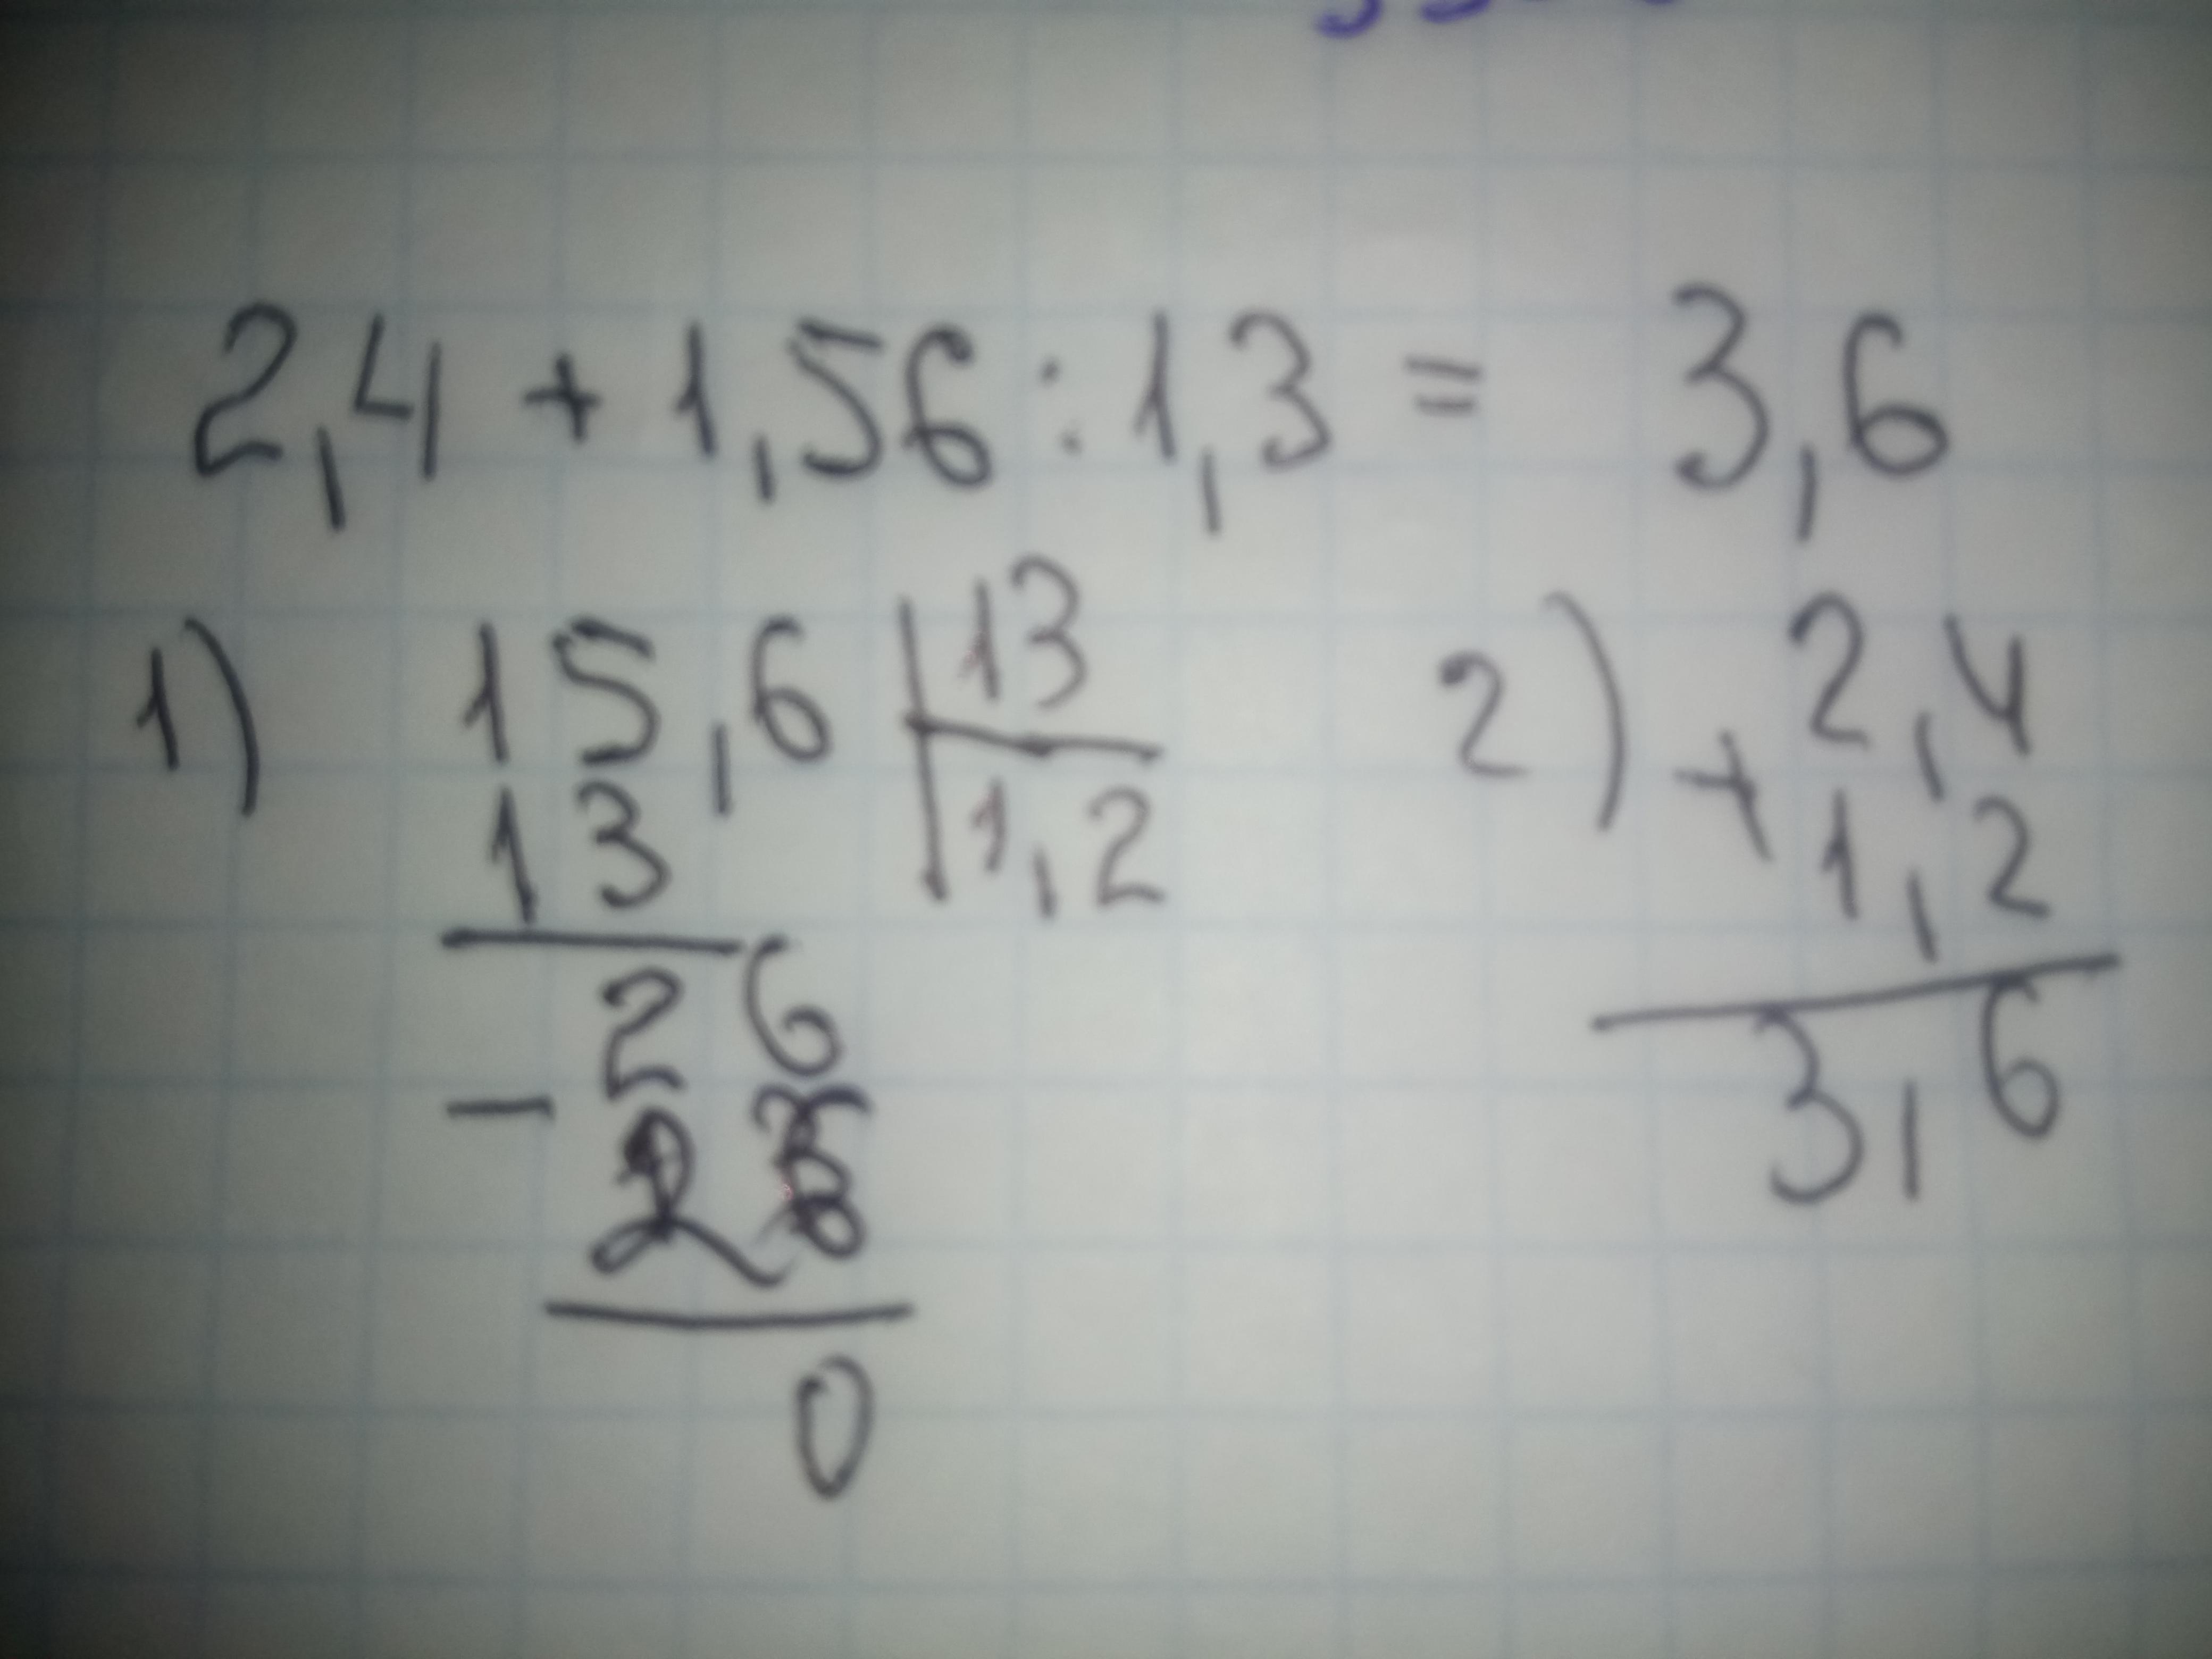 2,4 + 1,56 : 1,3 = 3,6
1) 15,6 | 13
13 | 1,2
26
- 26
0
2) + 2,4
1,2
3,6